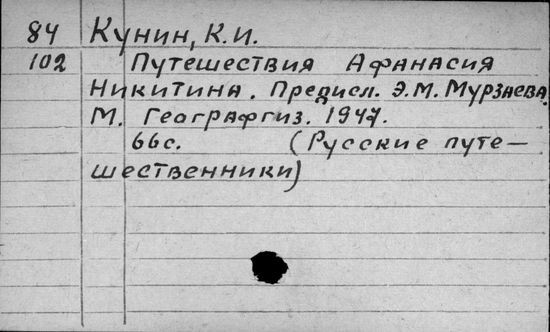 84 Кунин, К.И.
102 Путешествия Афанасия
Никитина. Предисл. Э.М. Мурзаева.
М. Географгиз. 1947.
66с. (Русские путе–
шественники)